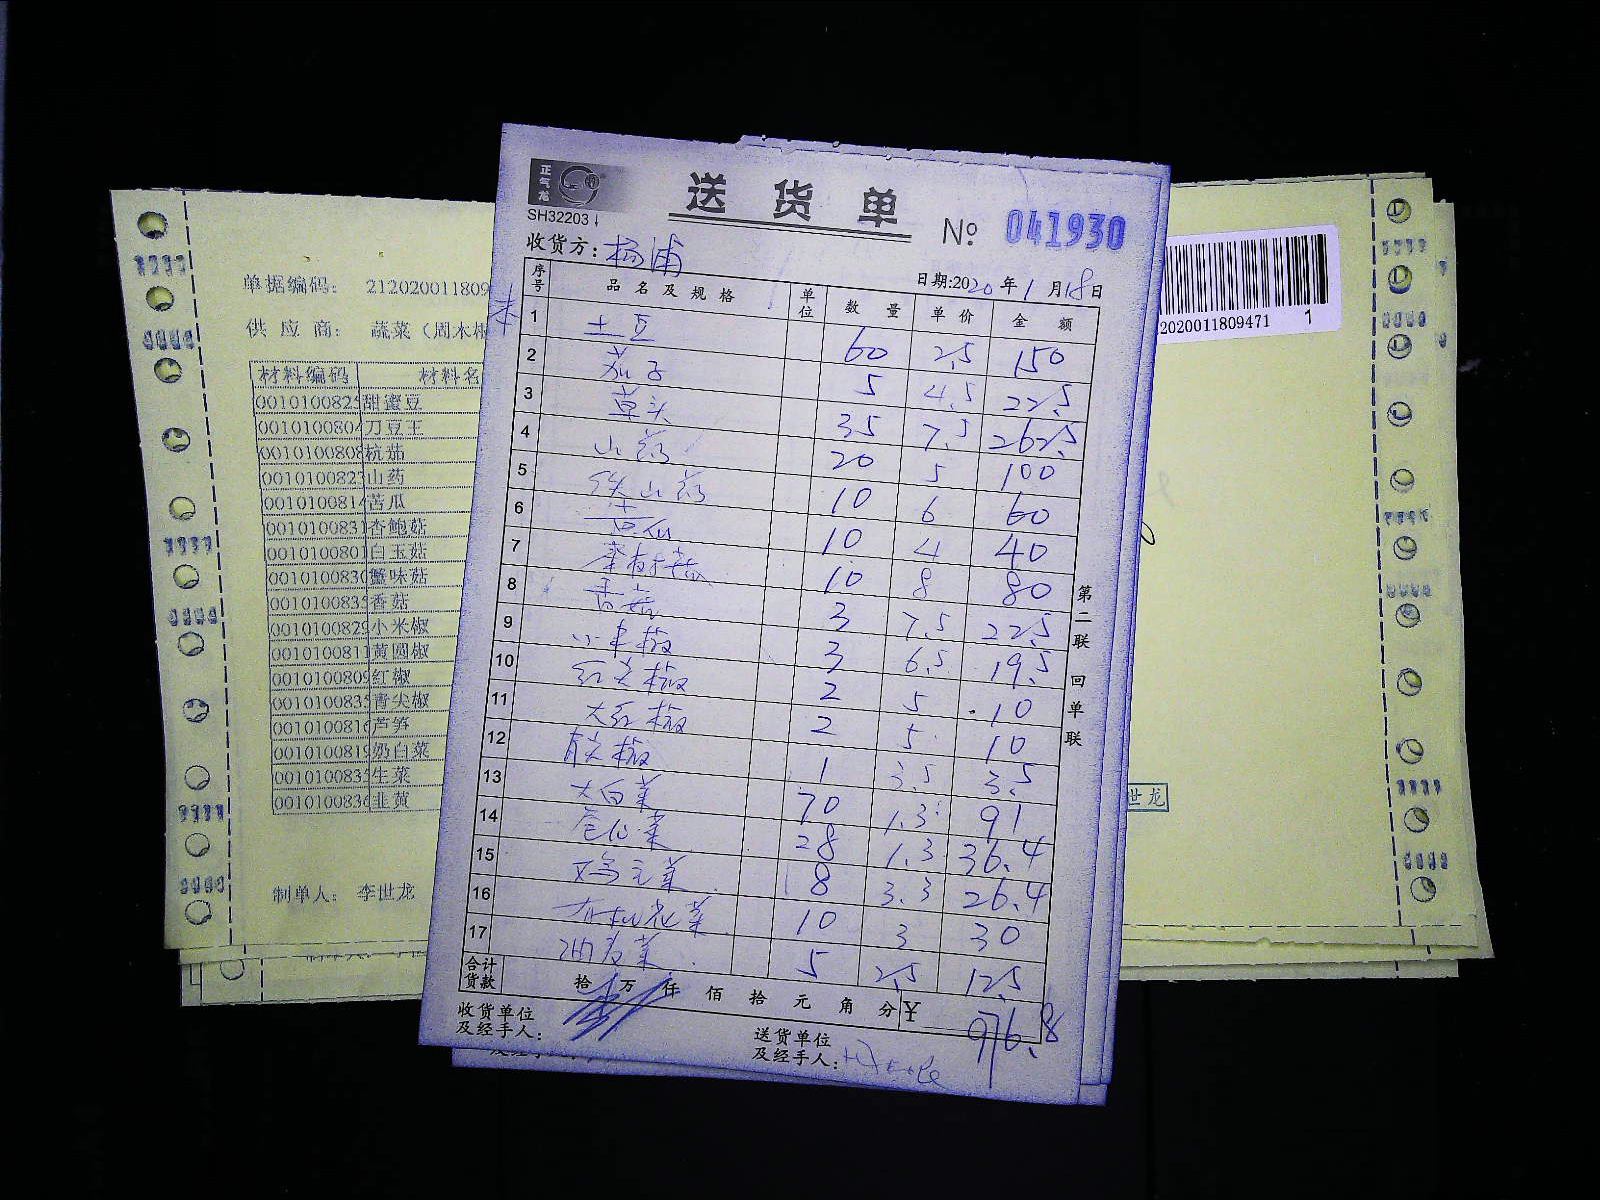 正气龙
SH32203
送 货 单
№ 041930
收货方：杨浦
日期:2020年1月18日
序号 品名及规格 单位 数量 单价 金额
1 土豆 60 2.5 150
2 茄子 5 4.5 22.5
3 草头 35 7.5 262.5
4 山药 20 5 100
5 铁山药 10 6 60
6 苦瓜 10 4 40
7 10 8 80
8 香菇 3 7.5 22.5
9 小米椒 3 6.5 19.5
10 红尖椒 2 5 10
11 大红椒 2 5 10
12 青尖椒 1 3.5 3.5
13 大白菜 70 1.3 91
14 卷心菜 28 1.3 36.4
15 鸡毛菜 8 3.3 26.4
16 有机花菜 10 3 30
17 油麦菜 5 2.5 12.5
合计货款 拾 万 仟 佰 拾 元 角 分 ¥ 976.8
收货单位及经手人：
送货单位及经手人：
第二联 回单联
单据编码： 212020011809
供 应 商： 蔬菜（周木
材料编码 材料名
0010100825 甜蜜豆
001010080 刀豆王
0010100808 杭茄
001010082 山药
001010081 苦瓜
001010083 杏鲍菇
001010080 白玉菇
001010083 蟹味菇
001010083 香菇
001010082 小米椒
001010081 黄圆椒
001010080 红椒
001010083 青尖椒
001010081 芦笋
001010081 奶白菜
001010083 生菜
001010083 韭黄
制单人： 李世龙
2020011809471 1
世龙